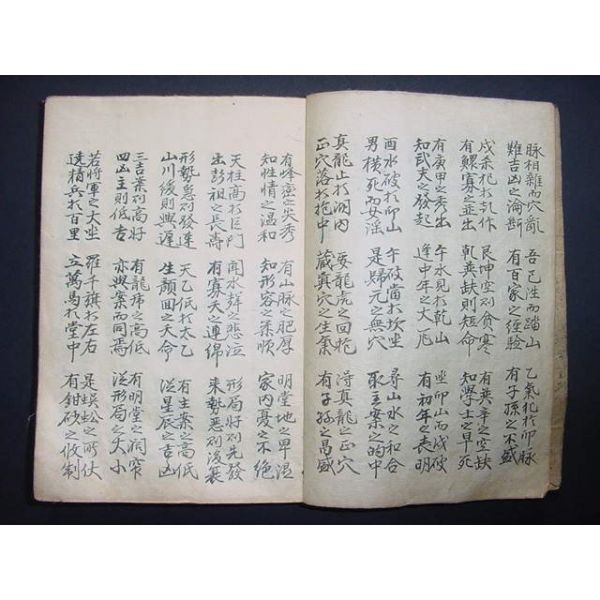 脉相雜而穴亂 吾已法而踏山 乙氣犯於卯脉
難吉凶之淪斷 有百家之經驗 有子孫之不盛
戌乘犯於乾作 艮坤空則貧寒 有巽辛之空缺
有鰥寡之並出 乾巽缺則短命 知學士之早死
有庚甲之秀出 午水見於乾山 坐卯山而戌破
知武夫之發起 逢中年之大厄 有初年之喪明
酉水破於卯山 午破當於坎坐 尋山水之和合
男橫死而女淫 是歸元之無穴 取主案之的中
真龍止於湖内 要龍虎之回抱 得真龍之正穴
正穴落於抱中 藏真穴之生氣 有子孫之昌盛
有峰巒之尖秀 有山脉之肥厚 明堂地之卑湿
知性情之温和 知形容之柔順 家内憂之不絶
天柱高於巨門 聞水聲之悲泣 形局好則先發
出彭祖之長壽 有寡夭之連綿 來勢惡則後衰
形勢急則發速 天乙低於太乙 有主案之高低
山川緩則興遲 生顔回之夭命 從星辰之吉凶
三吉案則高好 有龍席之高低 有明堂之濶窄
四凶主則低吉 亦與案而同焉 從形局之大小
若將軍之大坐 羅千旗於左右 是蜈蚣之所伏
精兵於百里 立萬馬於堂中 有鉗砂之收制